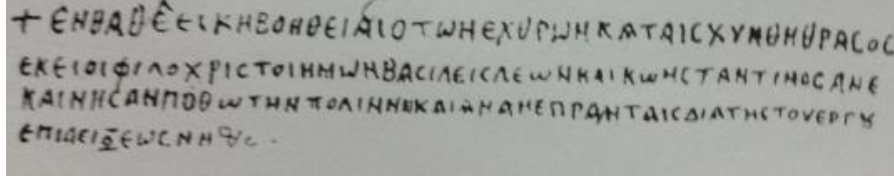 + ΕΝΒΑΘΕΕΙCΚΗΒΟΗΘΕΙΑΙΟΤΩΝΕΧΥΡΩΝΚΑΤΑΙCΧΥΝΘΗΘΡΑCΟC
ΕΚΕΙΟΙΦΙΛΟΧΡΙCΤΟΙΗΜΩΝΒΑCΙΛΕΙCΛΕΩΝΚΑΙΚΩΝCΤΑΝΤΙΝΟCΑΝΕ
ΚΑΙΝΗCΑΝΠΟΘΩΤΗΝΠΟΛΙΝΝΙΚΑΙΑΝΑΝΕΠΡΑΝΤΑΙCΔΙΑΤΗCΤΟΥΕΡΓȢ
ΕΠΙΔΕΙΞΕΩC